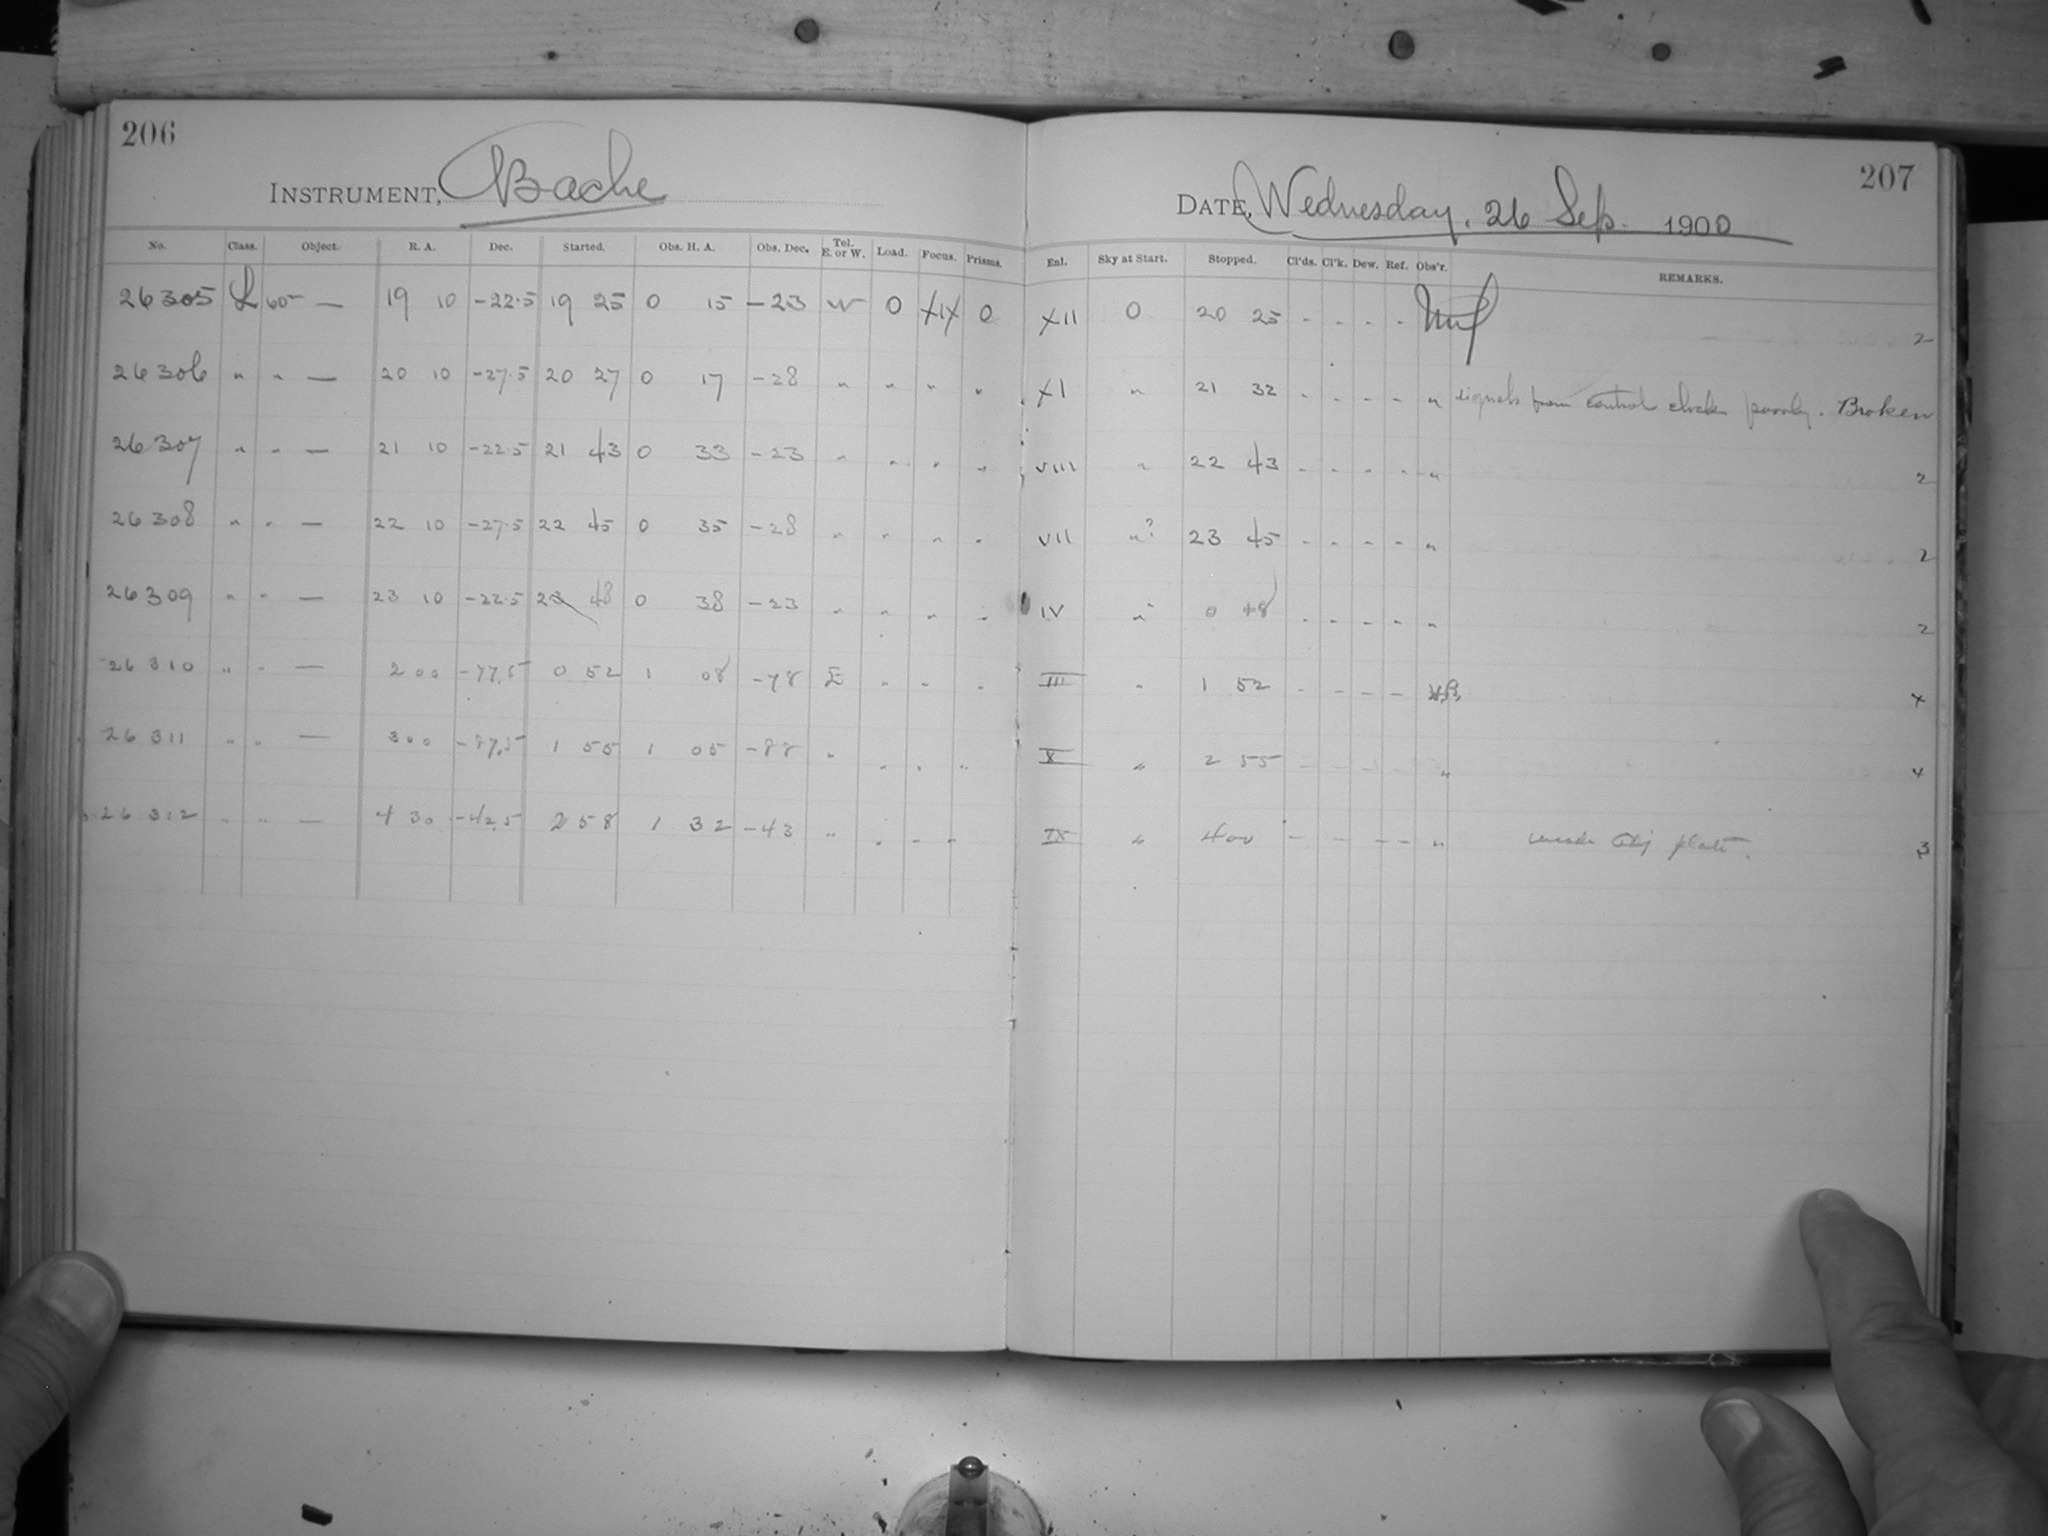 206
INSTRUMENT, Bache
No. Class. Object. R. A. Dec. Started. Obs. H. A. Obs. Dec. Tel. E. or W. Load. Focus. Prisms.
26305 L 60- — 19 10 -22.5 19 25 0 15 -23 W 0 XIX 0
26306 " " — 20 10 -27.5 20 27 0 17 -28 " " " "
26307 " " — 21 10 -22.5 21 43 0 33 -23 " " " "
26308 " " — 22 10 -27.5 22 45 0 35 -28 " " " "
26309 " " — 23 10 -22.5 23 48 0 38 -23 " " " "
26310 " " — 2 00 -77.5 0 52 1 08 -78 E " " "
26311 " " — 3 00 -87.5 1 55 1 05 -88 " " " "
26312 " " — 4 30 -42.5 2 58 1 32 -43 " " " "
207
DATE, Wednesday, 26 Sep. 1900
Enl. Sky at Start. Stopped. Cl'ds. Cl'k. Dew. Ref. Obs'r. REMARKS.
XII 0 20 25 - - - - 2
XI " 21 32 - - - - " signals from control clock poorly. Broken
VIII " 22 43 - - - - " 2
VII "? 23 45 - - - - " 2
IV " 0 48 - - - - " 2
III " 1 52 - - - - 4
X " 2 55 - - - - " 4
IX " 4 00 - - - - " Obj plate. 3